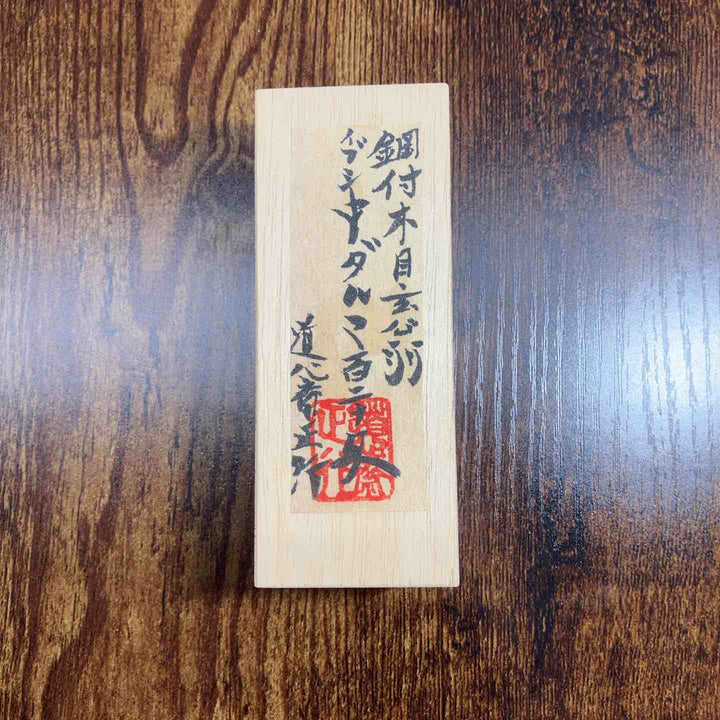 鋼付木目玄翁
イブシ中ダルマ百二十匁
道心斎正行